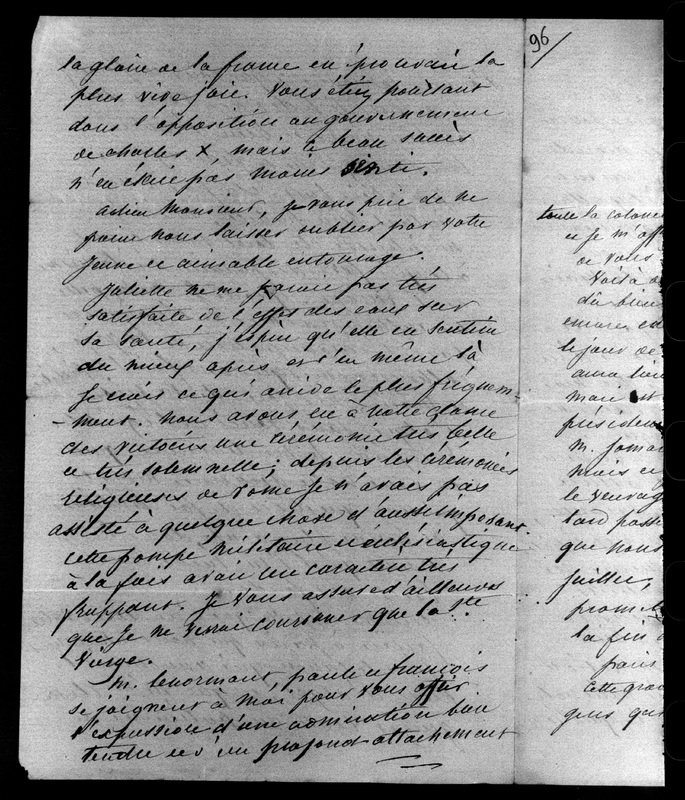 la gloire de la france en éprouvait la
plus vive joie. Vous étiez pourtant
dans l'opposition au gouvernement
de charles X, mais ce beau succès
n'en était pas moins senti.
adieu Monsieur, je vous prie de ne
point nous laisser oublier par votre
jeune et aimable entourage.
Juliette ne me parait pas très
satisfaite de l'effet des eaux sur
sa santé, j'espère qu'elle en sentira
du mieux après et c'en même là
je crois ce qui arrive le plus fréquem-
-ment. nous avons eu à notre dame
des victoires une cérémonie très belle
et très solemnelle; depuis les cérémonies
religieuses de rome je n'avais pas
assisté à quelque chose d'aussi imposant.
cette pompe militaire et ecclésiastique
à la fois avait un caractère très
frappant. je vous assure d'ailleurs
que je ne verrai couronner que la ste
Vierge.
M. Lenormant, paule et françois
se joignent à moi pour vous offrir
l'expression d'une admiration bien
tendre et d'un profond attachement
96
toute la colonie
et je m'aff
de vous
Voilà
du bien
encore
le jour de
aura lieu
mais
président
M.
mais
le
tard
que nous
juillet,
la fin
paris
cette gra
gens qui